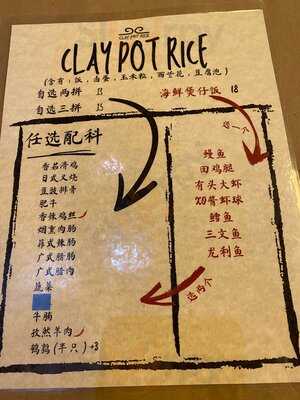 CLAY POT RICE
CLAY POT RICE
(含有:饭,卤蛋,玉米粒,西兰花,豆腐泡)
自选两拼 13
自选三拼 15
海鲜煲仔饭 18
任选配料
香菇滑鸡
日式叉烧
豆豉排骨
肥牛
香辣鸡丝
烟熏肉肠
菲式辣肠
广式腊肠
广式腊肉
蔬菜
牛腩
孜然羊肉
鹌鹑(半只)+3
选一个
鳗鱼
田鸡腿
有头大虾
XO酱虾球
鳕鱼
三文鱼
龙利鱼
选两个